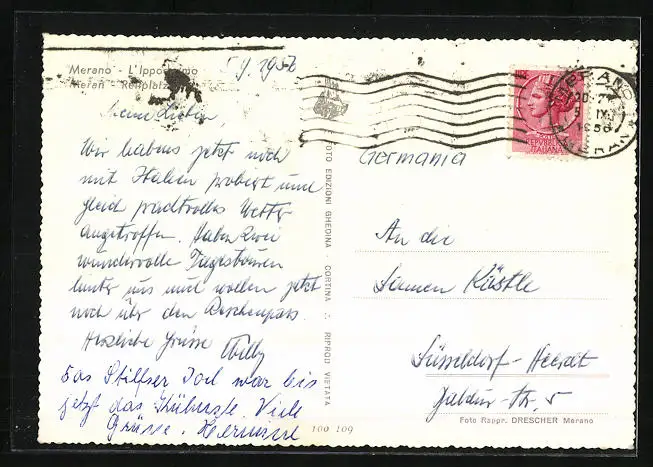 Merano - L'Ippodromo
Meran - Rennplatz
Meine Lieben,
Wir haben jetzt noch
mit Italien probiert und
gleich prachtvolles Wetter
angetroffen. Haben zwei
wundervolle Tagestouren
hinter uns und wollen jetzt
noch über den Reschenpass.
Herzliche Grüsse Willy
Das Stilfser Joch war bis
jetzt das Kühnste. Viele
Grüsse. Hermine
FOTO EDIZIONI GHEDINA - CORTINA - RIPROD. VIETATA
REPVBBLICA
ITALIANA
MERANO
Germania
An die
Kästle
Düsseldorf-Heerdt
Str. 5
Foto Rappr. DRESCHER Merano
100 109